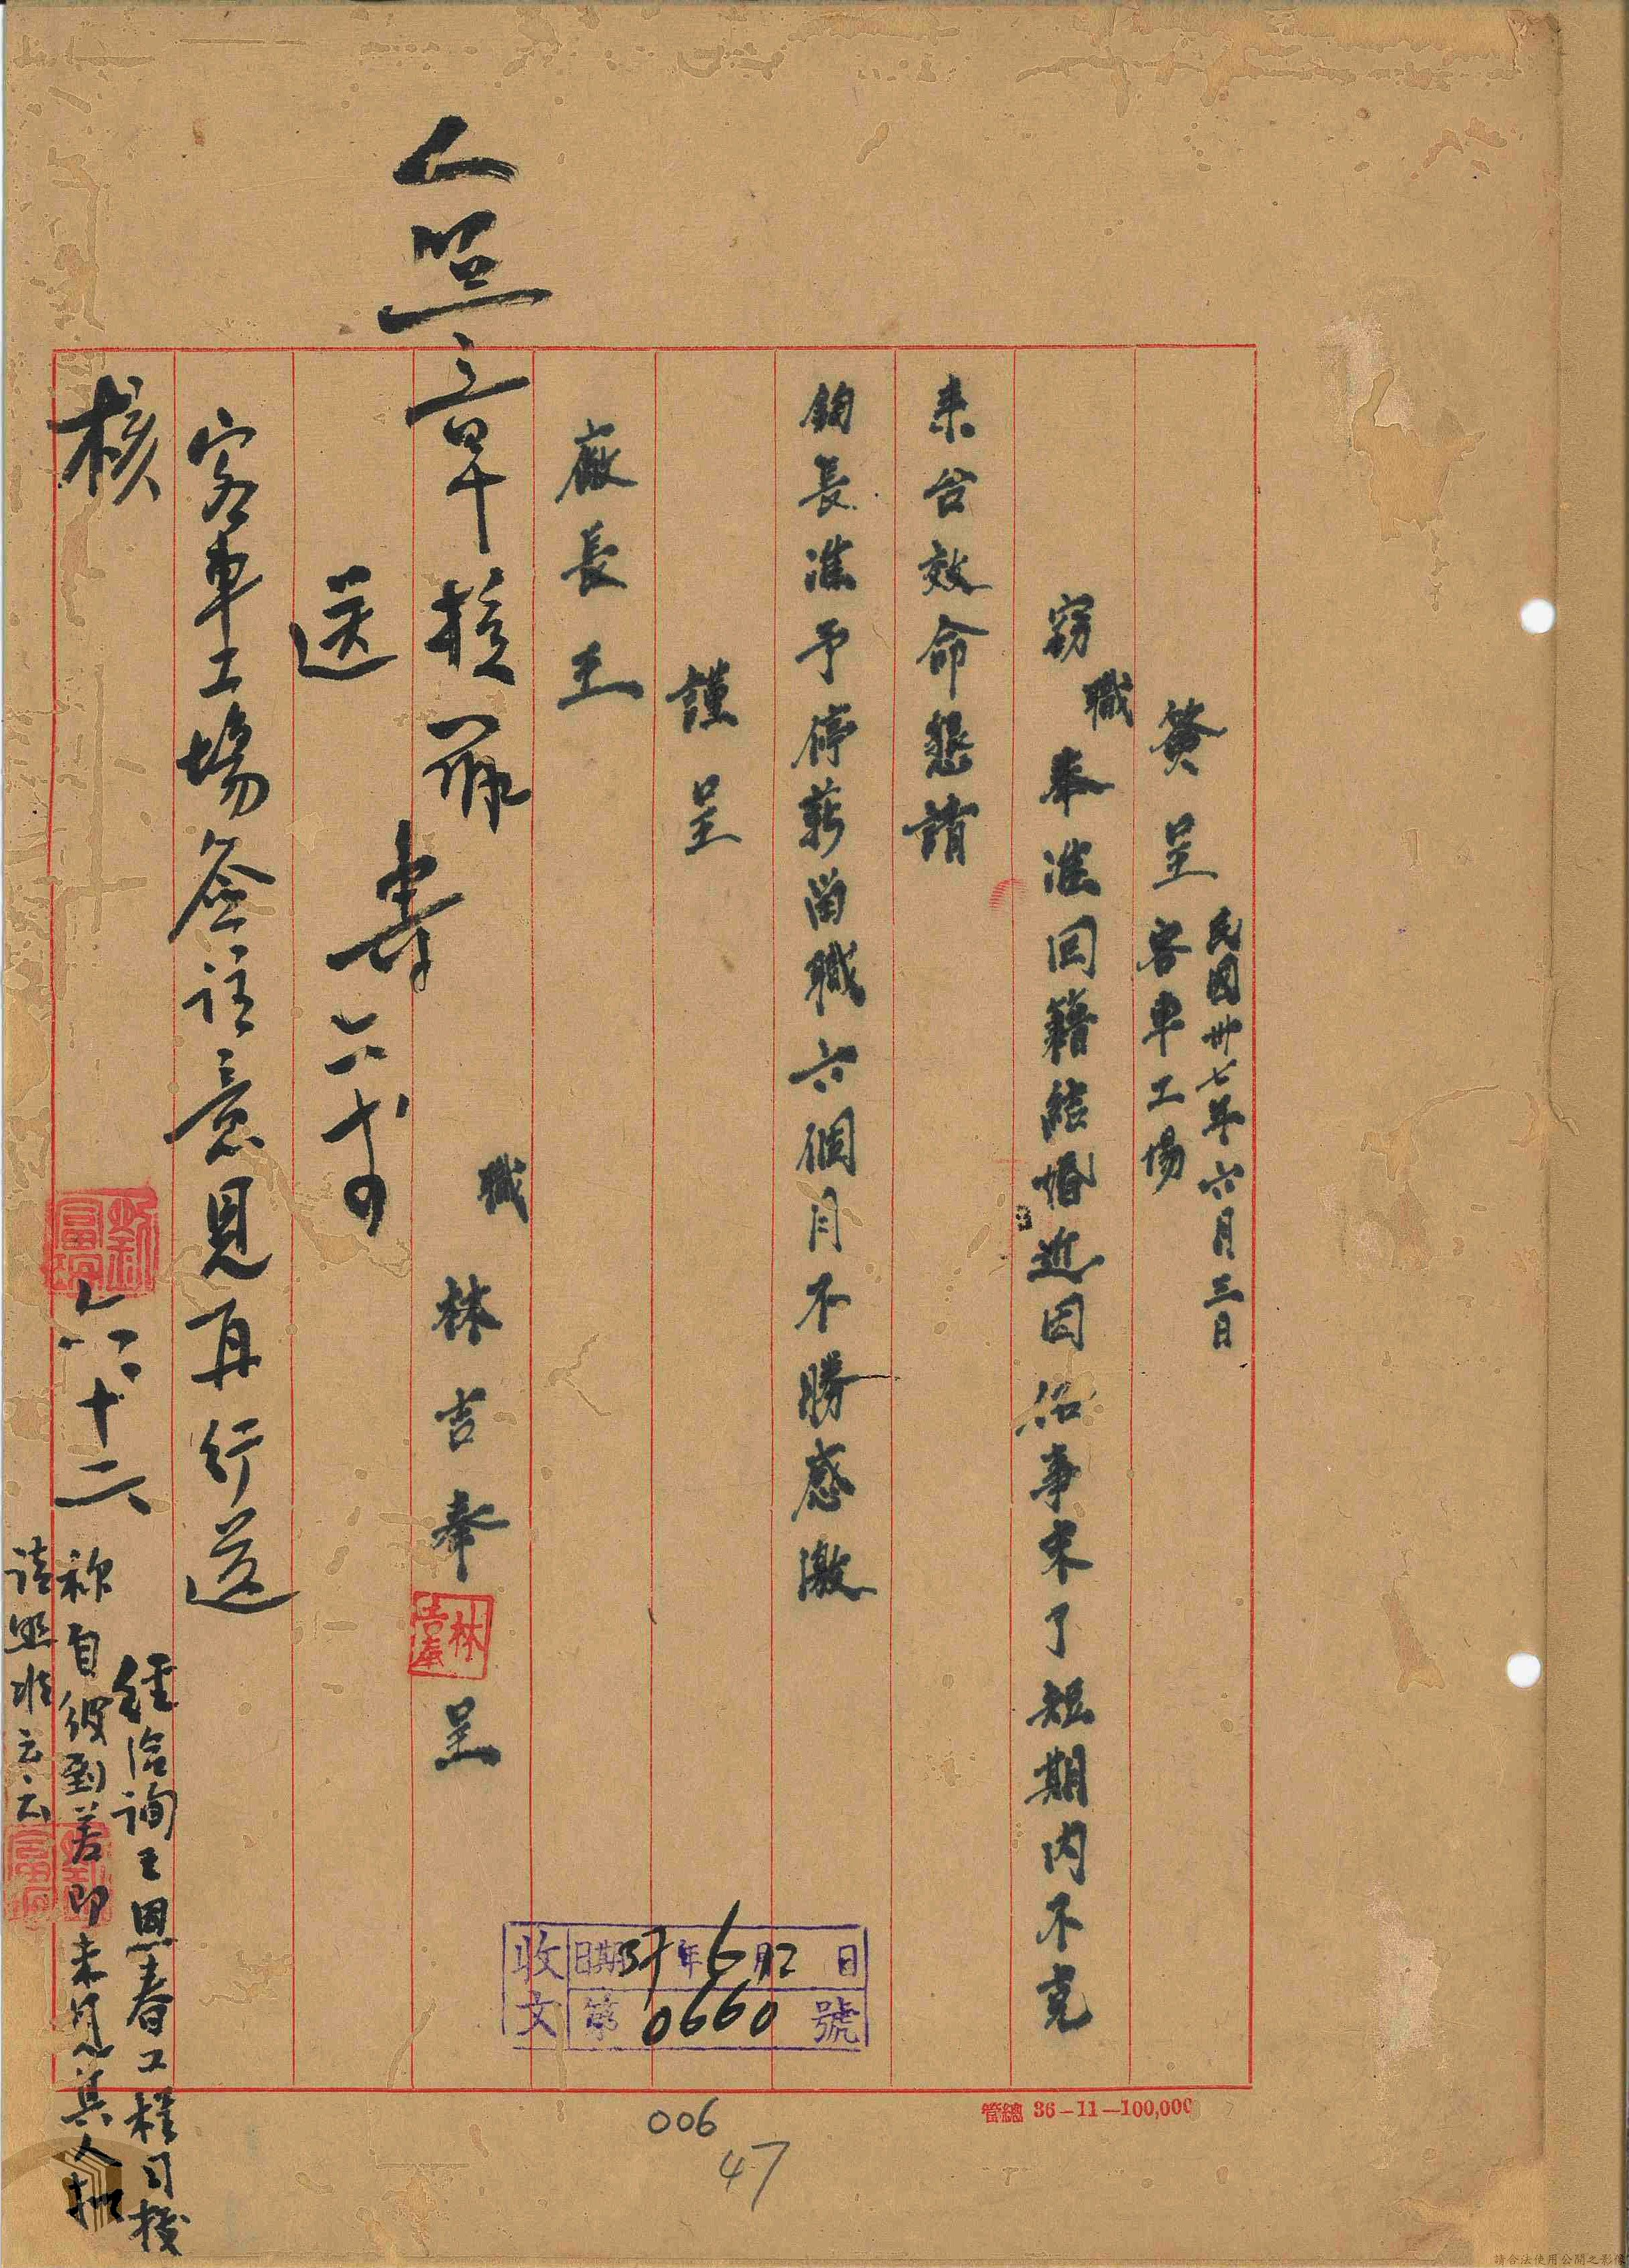 簽呈 民國卅七年六月三日
客車工場
竊職奉准回籍結婚近因俗事未了短期内不克
来台效命懇請
鈞長准予停薪留職六個月不勝感激
謹呈
廠長王
職 林吉奉 呈
林吉奉
照章核辦
六十四
送
客車工場簽註意見再行送
核
六十二
經洽詢王恩春工程司後
称自彼到差即未見其人
請照准云云
收文 日期37年6月12日
第0660號
管總 36-11-100,000
006
47
請合法使用公開之影像